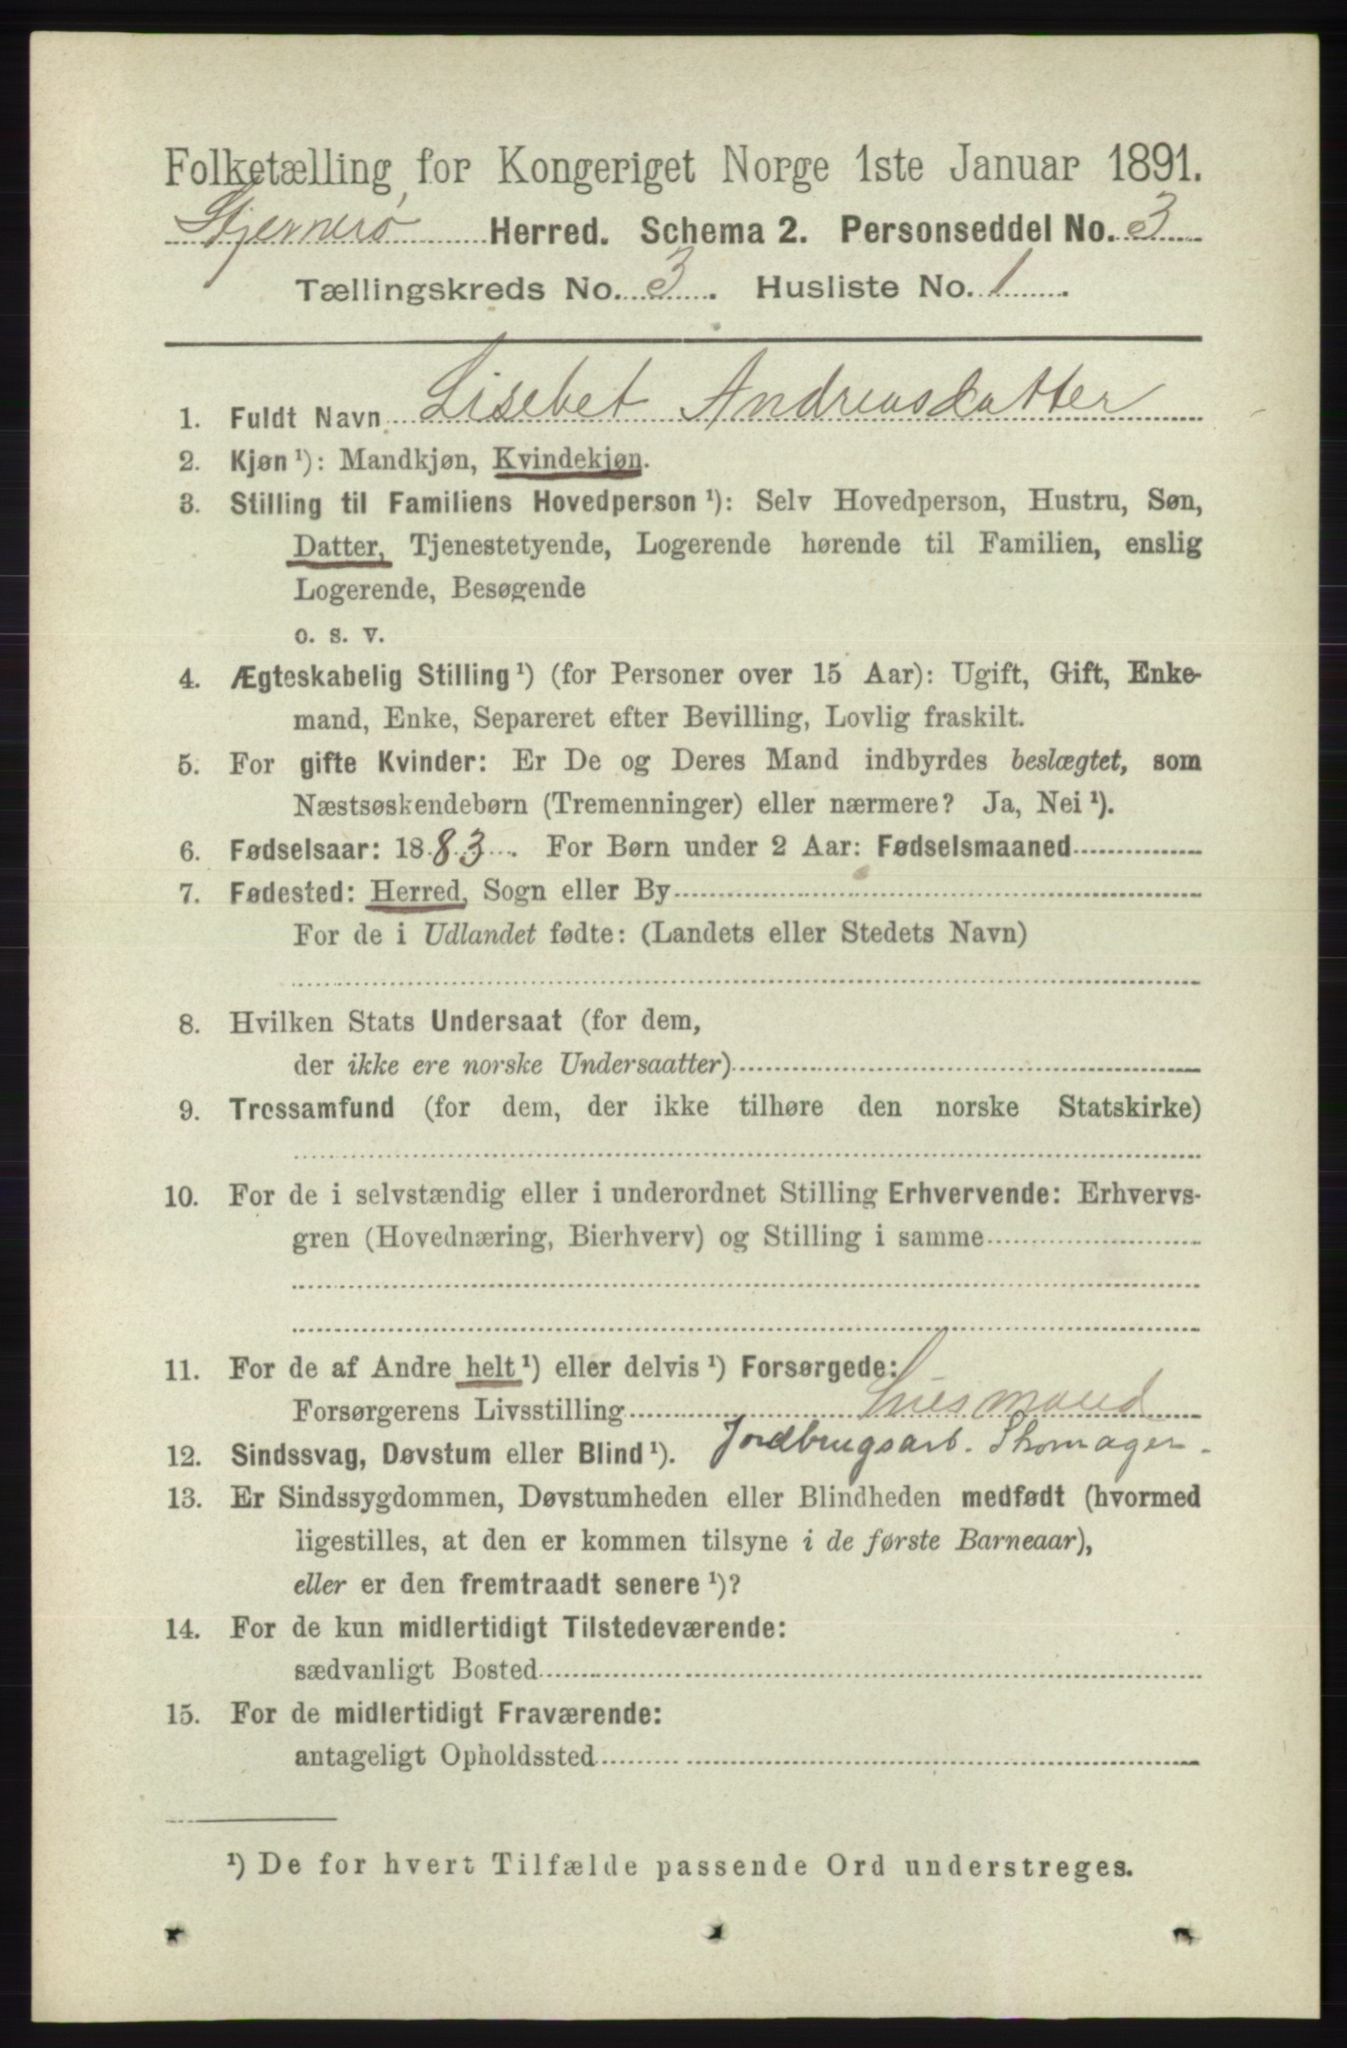 Folketælling for Kongeriget Norge 1ste Januar 1891.
Stjernerø Herred. Schema 2. Personseddel No. 3
Tællingskreds No. 3. Husliste No. 1.
1. Fuldt Navn Lisebet Andreasdatter
2. Kjøn ¹): Mandkjøn, Kvindekjøn.
3. Stilling til Familiens Hovedperson ¹): Selv Hovedperson, Hustru, Søn,
Datter, Tjenestetyende, Logerende hørende til Familien, enslig
Logerende, Besøgende
o. s. v.
4. Ægteskabelig Stilling ¹) (for Personer over 15 Aar): Ugift, Gift, Enke-
mand, Enke, Separeret efter Bevilling, Lovlig fraskilt.
5. For gifte Kvinder: Er De og Deres Mand indbyrdes beslægtet, som
Næstsøskendebørn (Tremenninger) eller nærmere? Ja, Nei ¹).
6. Fødselsaar: 1883. For Børn under 2 Aar: Fødselsmaaned
7. Fødested: Herred, Sogn eller By
For de i Udlandet fødte: (Landets eller Stedets Navn)
8. Hvilken Stats Undersaat (for dem,
der ikke ere norske Undersaatter)
9. Trossamfund (for dem, der ikke tilhøre den norske Statskirke)
10. For de i selvstændig eller i underordnet Stilling Erhvervende: Erhvervs-
gren (Hovednæring, Bierhverv) og Stilling i samme
11. For de af Andre helt ¹) eller delvis ¹) Forsørgede:
Forsørgerens Livsstilling Huesmand
12. Sindssvag, Døvstum eller Blind ¹). Jordbrugsarb. Skomager.
13. Er Sindssygdommen, Døvstumheden eller Blindheden medfødt (hvormed
ligestilles, at den er kommen tilsyne i de første Barneaar),
eller er den fremtraadt senere ¹)?
14. For de kun midlertidigt Tilstedeværende:
sædvanligt Bosted
15. For de midlertidigt Fraværende:
antageligt Opholdssted
¹) De for hvert Tilfælde passende Ord understreges.